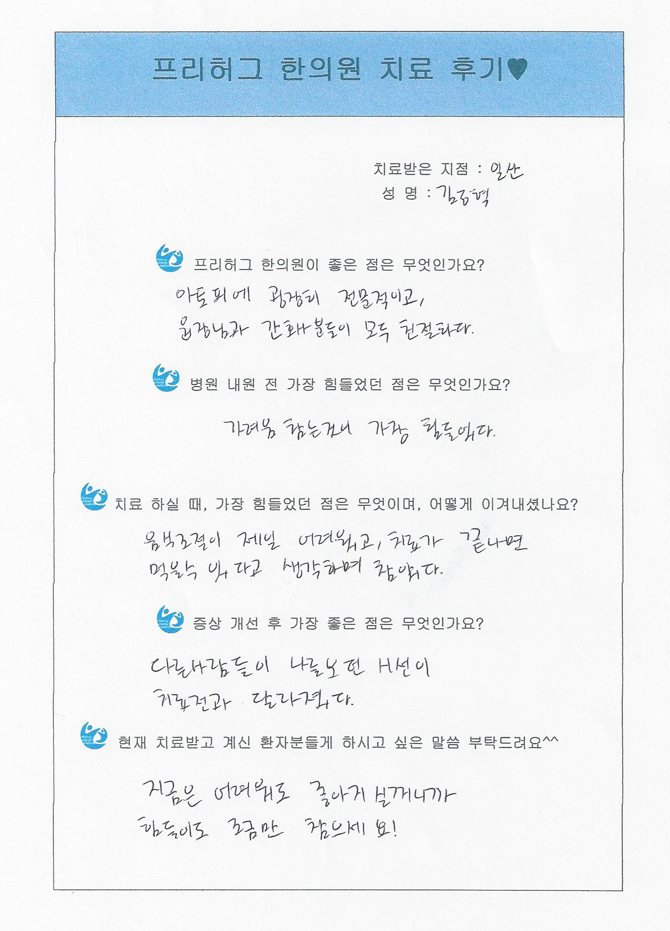 프리허그 한의원 치료 후기♥
치료받은 지점 : 일산
성 명 : 김동혁
프리허그 한의원이 좋은 점은 무엇인가요?
아토피에 굉장히 전문적이고,
원장님과 간호사분들이 모두 친절하다.
병원 내원 전 가장 힘들었던 점은 무엇인가요?
가려움 참는것이 가장 힘들었다.
치료 하실 때, 가장 힘들었던 점은 무엇이며, 어떻게 이겨내셨나요?
음식조절이 제일 어려웠고, 치료가 끝나면
먹을수 있다고 생각하며 참았다.
증상 개선 후 가장 좋은 점은 무엇인가요?
다른사람들이 나를보던 시선이
치료전과 달라졌다.
현재 치료받고 계신 환자분들게 하시고 싶은 말씀 부탁드려요^^
지금은 어려워도 좋아지실꺼니까
힘들어도 조금만 참으세요!